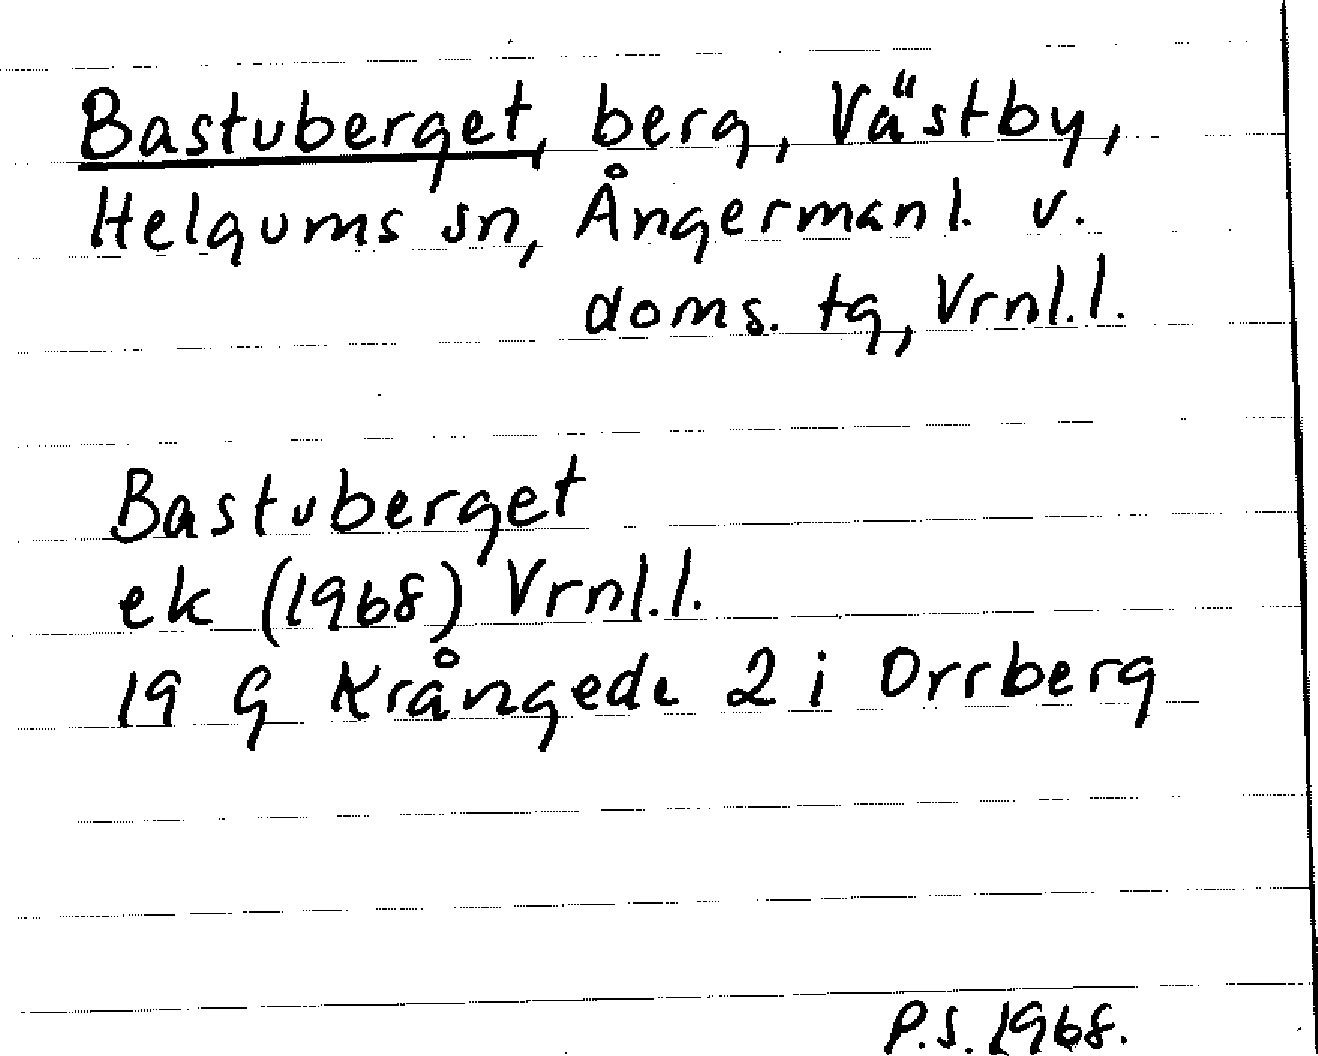 Bastuberget, berg, Västby,
Helgums sn, Ångermanl. v.
doms. tg, Vrnl.l.
Bastuberget
ek (1968) Vrnl.l.
19 G Krångede 2 i Orrberg
P.S. 1968.